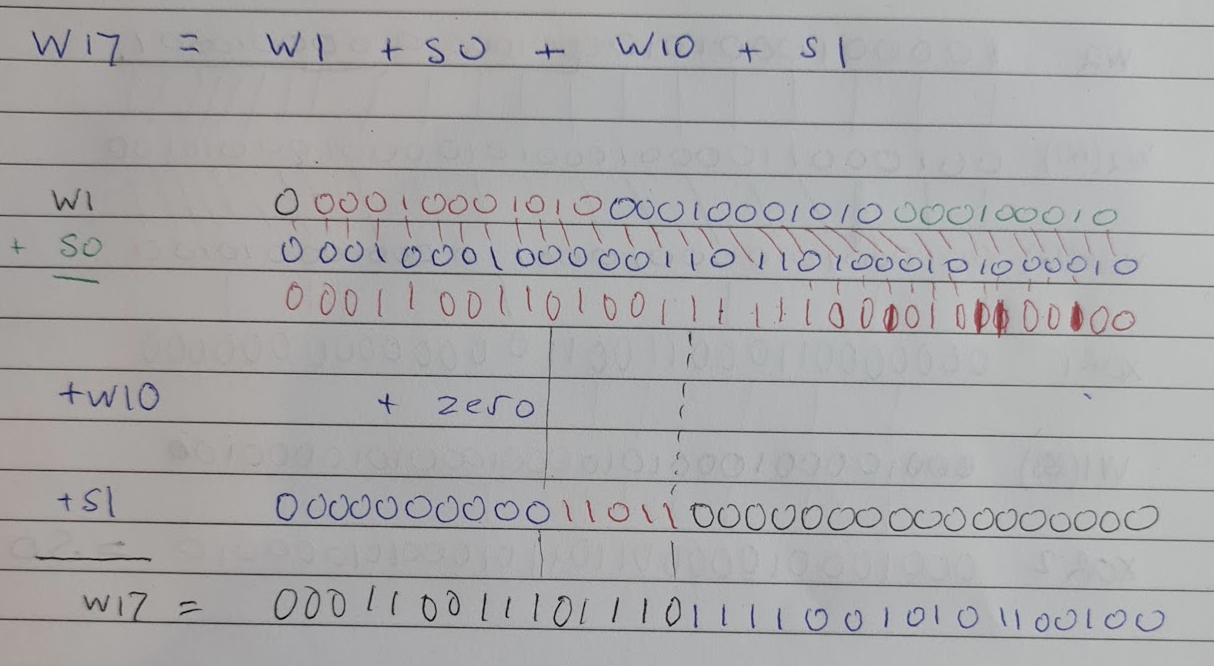 W17 = W1 + S0 + W10 + S1
W1 00001000101000010001010000100010
+ S0 00010001000001101101000101000010
00011001101001111110010101100100
+W10 + zero
+S1 00000000001101100000000000000000
W17 = 00011001110111011110010101100100